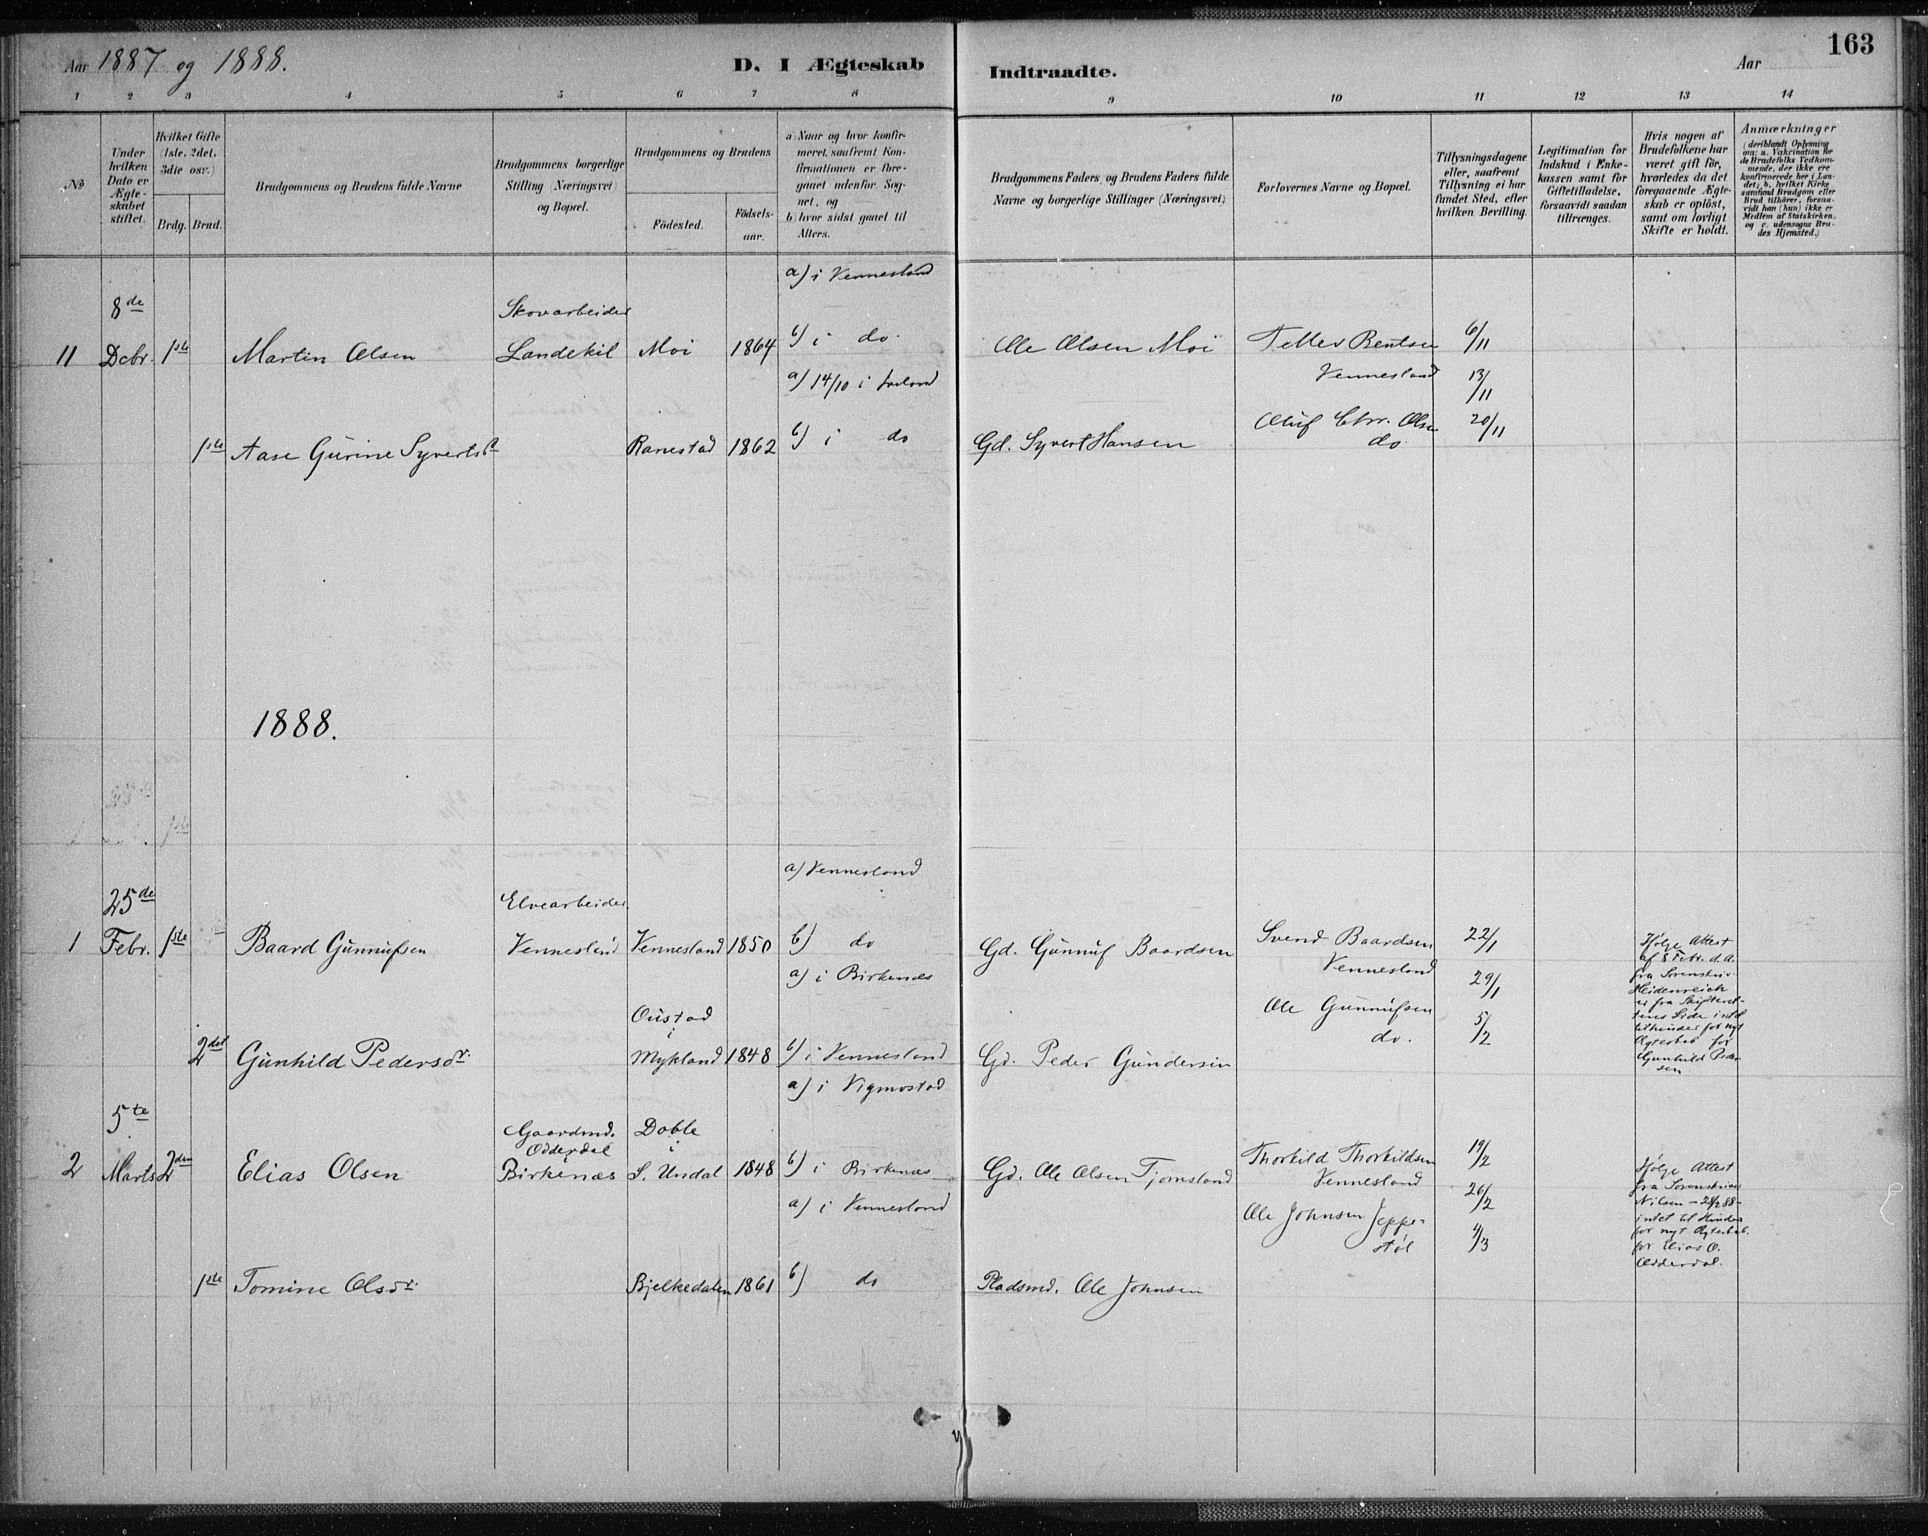 Aar 1887 og 1888.
D. I Ægteskab
Indtraadte.
Aar
163
1 2 3 4 5 6 7 8
9 10 11 12 13 14
No
Under hvilken Dato er Ægteskabet stiftet.
Hvilket Gifte (1ste, 2det, 3die osv.)
Brdg. Brud.
Brudgommens og Brudens fulde Navne
Brudgommens borgerlige Stilling (Næringsvei) og Bopæl.
Brudgommens og Brudens
Födested.
Födselsaar.
a) Naar og hvor konfirmeret, saafremt Konfirmationen er foregaaet udenfor Sognet, og
b) hvor sidst gaaet til Alters.
Brudgommens Faders og Brudens Faders fulde Navne og borgerlige Stillinger (Næringsvei)
Forlovernes Navne og Bopæl.
Tillysningsdagene eller, saafremt Tillysning ei har fundet Sted, efter hvilken Bevilling.
Legitimation for Indskud i Enkekassen samt for Giftetilladelse, forsaavidt saadan tiltrænges.
Hvis nogen af Brudefolkene har været gift för, hvorledes da det foregaaende Ægteskab er oplöst, samt om lovligt Skifte er holdt.
Anmærkninger (deriblandt Oplysning om: a. Vakcination for de Brudefolks Vedkommende, der ikke ere konfirmerede her i Landet; b. hvilket Kirkesamfund Brudgom eller Brud tilhører, forsaavidt han (hun) ikke er Medlem af Statskirken, og c. udensogns Brudes Hjemsted.)
a) i Vennesland
8de Skovarbeider
11 Dcbr. 1ste Martin Olsen Landekil Moi 1864 b) i do. Ole Olsen Moi Tellev Bentsen 6/11
a) 14/10 i Iveland Vennesland 13/11
Oluf Chr. Olsen 20/11
1ste Aase Gurine Syvertsd. Ranestad 1862 b) i do Gd. Syvert Hansen do
1888.
a) Vennesland
25de Elvearbeider.
1 Febr. 1ste Baard Gunnufsen Vennesland Vennesland 1850 b) do Gd. Gunnuf Baardsen Svend Baardsen 22/1
a) i Birkenæs Vennesland 29/1
Oustad i Ole Gunnufsen 5/2
2det Gunhild Pedersdr. Mykland 1848 b) i Vennesland Gd. Peder Gundersen do.
Ifølge Attest
af 8 Febr. d. A.
fra Sorenskriv.
Heidenreich
er fra Skifteret-
tens Side intet
tilhinder for nyt
Ægteskab for
Gunhild Peder-
sen
a) i Vigmostad
5te Gaardmd. Doble
Odderdal i
2 Marts 2den Elias Olsen Birkenæs S. Undal 1848 b) i Birkenæs Gd. Ole Olsen Tjomsland Thorkild Thorkildsen 19/2
a) i Vennesland Vennesland 26/2
Ole Johnsen Jeppe- 4/3
støl
1ste Tomine Olsdr. Bjelkedalen 1861 b) do Pladsmd. Ole Johnsen
Ifølge Attest
fra Sorenskriver
Nilsen - 28/2 88 -
intet til Hinder
for nyt Ægteskab
for Elias O.
Odderdal.